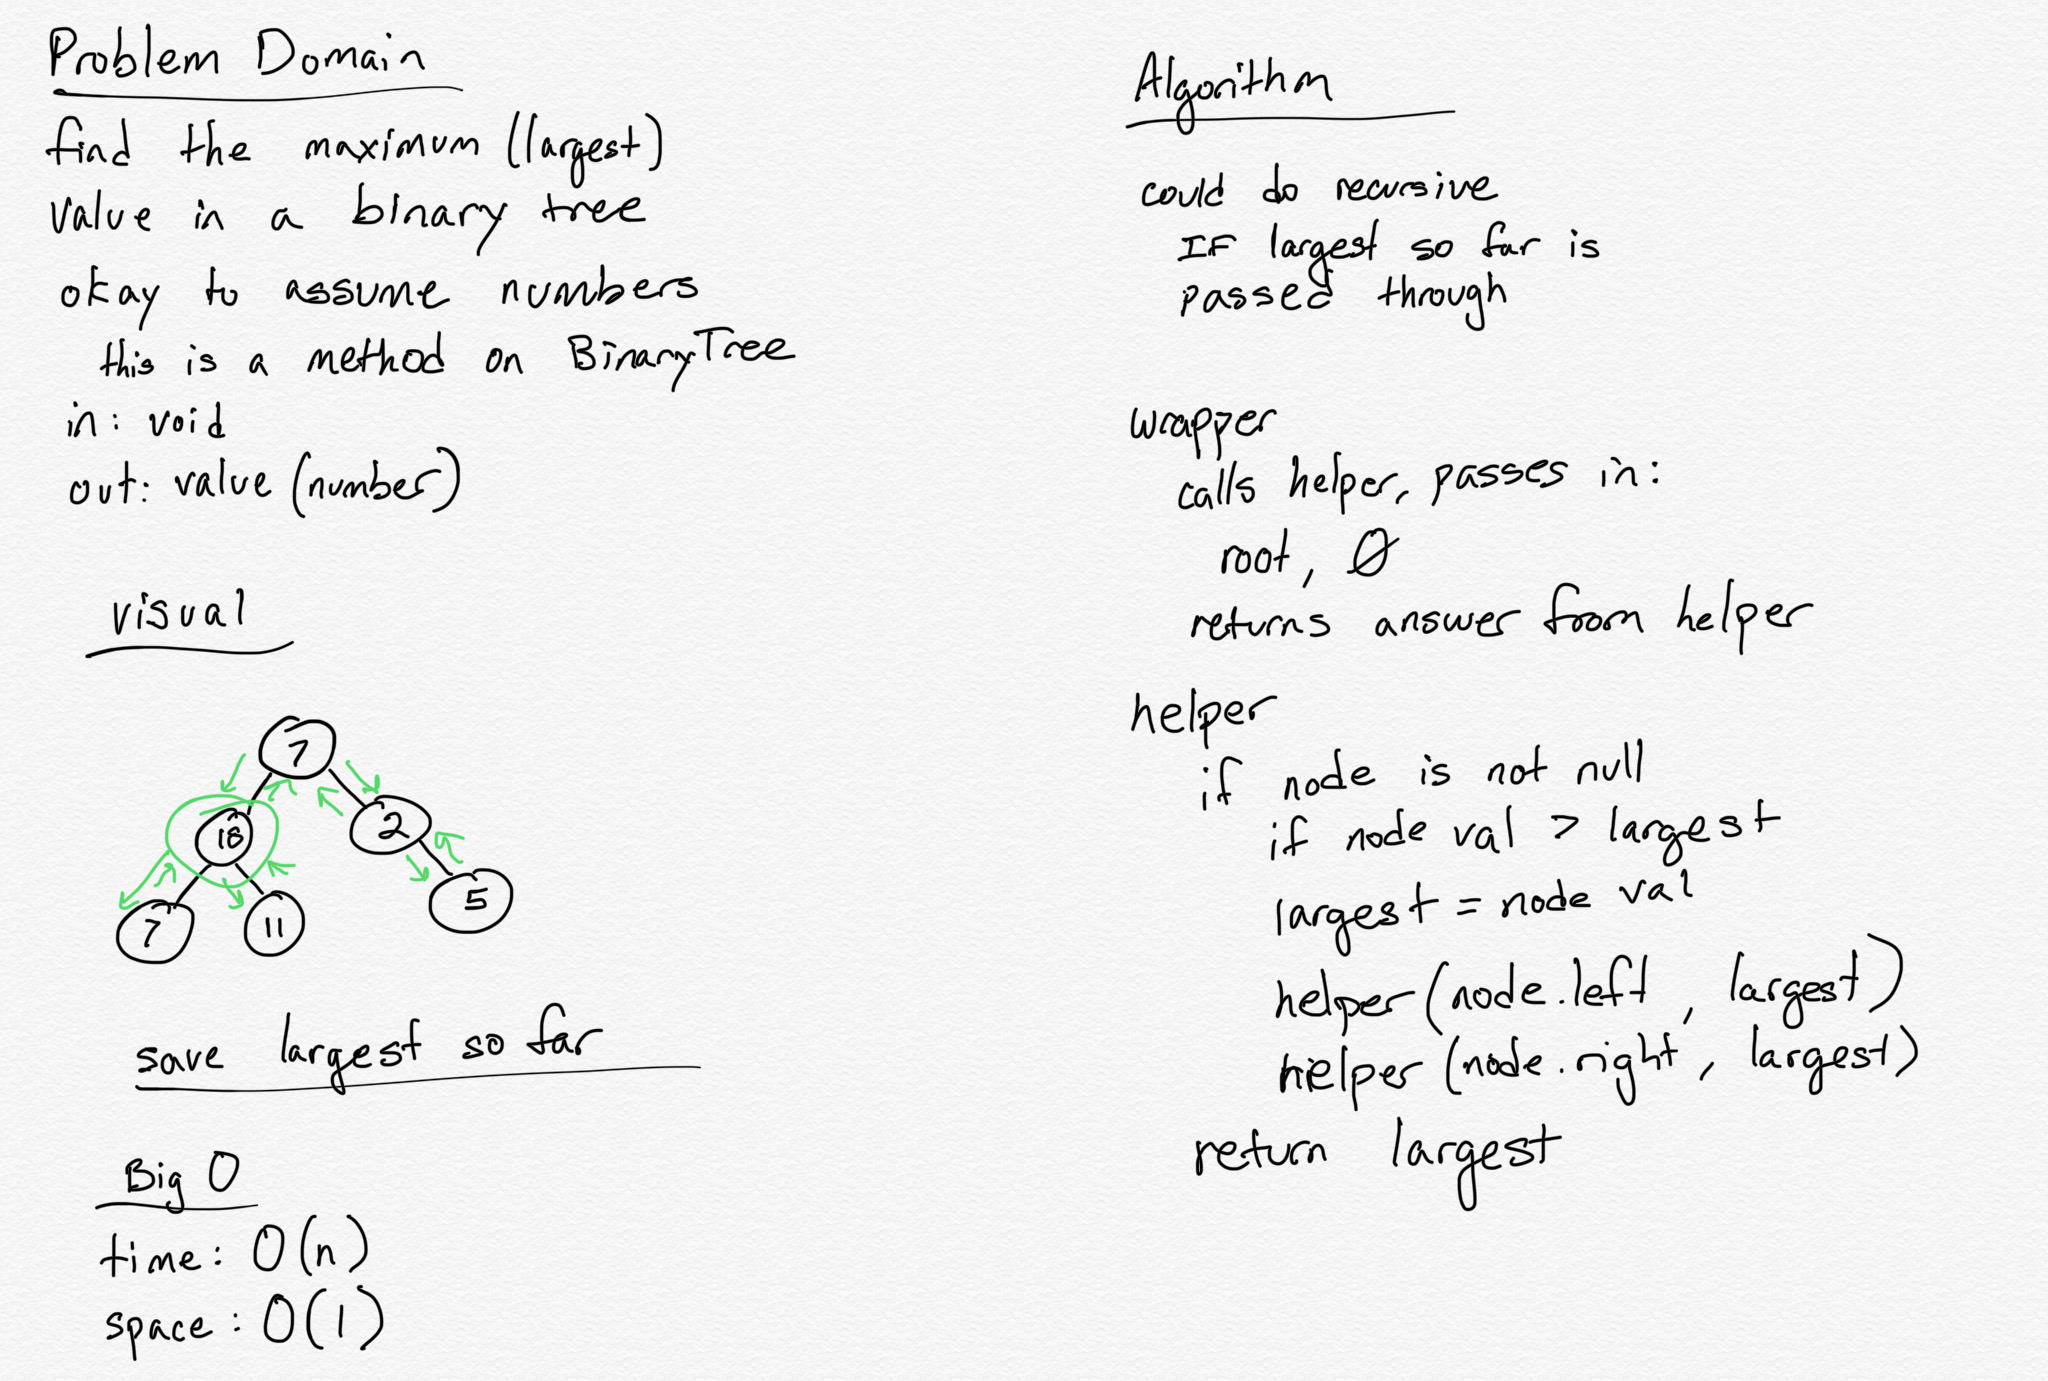 Problem Domain
find the maximum (largest)
value in a binary tree
okay to assume numbers
this is a method on BinaryTree
in: void
out: value (number)
visual
7
18
2
7
11
5
save largest so far
Big O
time: O(n)
space: O(1)
Algorithm
could do recursive
IF largest so far is
passed through
wrapper
calls helper, passes in:
root, 0
returns answer from helper
helper
if node is not null
if node val > largest
largest = node val
helper(node.left, largest)
helper(node.right, largest)
return largest